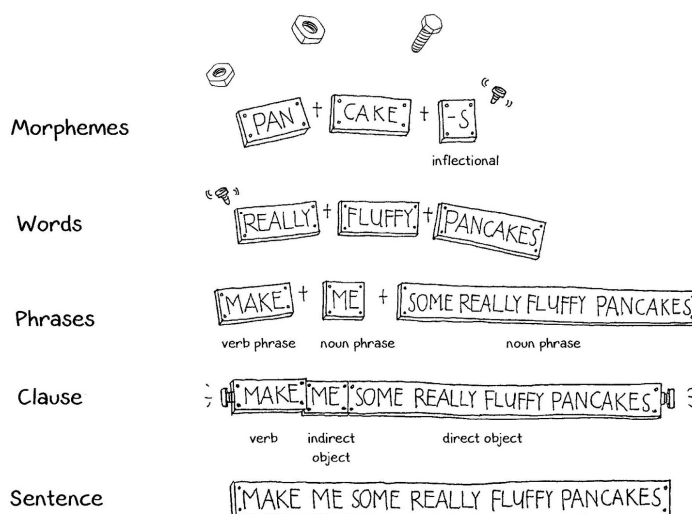 Morphemes PAN + CAKE + -S
inflectional
Words REALLY + FLUFFY + PANCAKES
Phrases MAKE + ME + SOME REALLY FLUFFY PANCAKES
verb phrase noun phrase noun phrase
Clause MAKE ME SOME REALLY FLUFFY PANCAKES
verb indirect object direct object
Sentence MAKE ME SOME REALLY FLUFFY PANCAKES